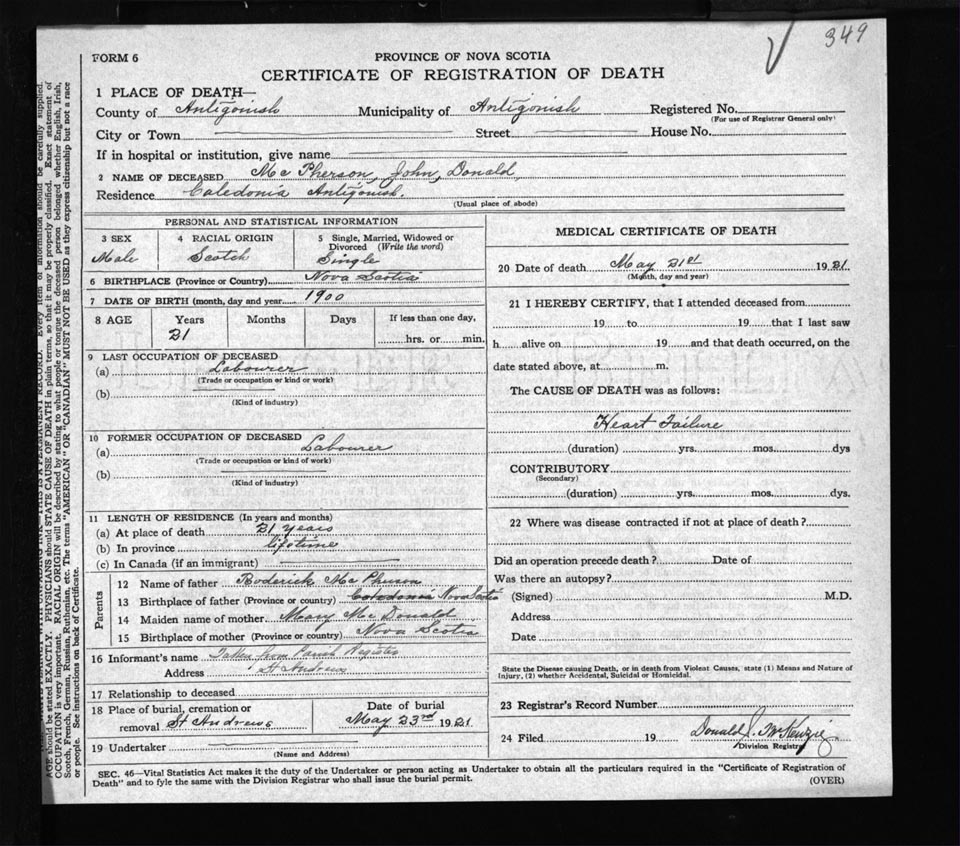 349
FORM 6
PROVINCE OF NOVA SCOTIA
CERTIFICATE OF REGISTRATION OF DEATH
1 PLACE OF DEATH—
County of Antigonish Municipality of Antigonish Registered No.
(For use of Registrar General only)
City or Town Street House No.
If in hospital or institution, give name
2 NAME OF DECEASED Mc Pherson, John, Donald
Residence Caledonia Antigonish.
(Usual place of abode)
PERSONAL AND STATISTICAL INFORMATION
3 SEX 4 RACIAL ORIGIN 5 Single, Married, Widowed or Divorced (Write the word)
Male Scotch Single
6 BIRTHPLACE (Province or Country) Nova Scotia
7 DATE OF BIRTH (month, day and year) 1900
8 AGE Years Months Days If less than one day,
21 hrs. or min.
9 LAST OCCUPATION OF DECEASED
(a) Labourer
(Trade or occupation or kind or work)
(b)
(Kind of industry)
10 FORMER OCCUPATION OF DECEASED
(a) Labourer
(Trade or occupation or kind of work)
(b)
(Kind of industry)
11 LENGTH OF RESIDENCE (In years and months)
(a) At place of death 21 years
(b) In province lifetime
(c) In Canada (if an immigrant)
Parents
12 Name of father Roderick Mc Pherson
13 Birthplace of father (Province or country) Caledonia Nova Scotia
14 Maiden name of mother Mary Mc Donald
15 Birthplace of mother (Province or country) Nova Scotia
16 Informant's name Taken from Parish Register
Address St Andrews
17 Relationship to deceased
18 Place of burial, cremation or Date of burial
removal St Andrews May 23rd 1921
19 Undertaker
(Name and Address)
MEDICAL CERTIFICATE OF DEATH
20 Date of death May 21st 1921.
(Month, day and year)
21 I HEREBY CERTIFY, that I attended deceased from
19 to 19 that I last saw
h alive on 19 and that death occurred, on the
date stated above, at m.
The CAUSE OF DEATH was as follows:
Heart Failure
(duration) yrs. mos. dys
CONTRIBUTORY
(Secondary)
(duration) yrs. mos. dys.
22 Where was disease contracted if not at place of death?
Did an operation precede death? Date of
Was there an autopsy?
(Signed) M.D.
Address
Date
State the Disease causing Death, or in death from Violent Causes, state (1) Means and Nature of
Injury, (2) whether Accidental, Suicidal or Homicidal.
23 Registrar's Record Number
24 Filed 19 Donald J. McKenzie
Division Registrar
SEC. 46—Vital Statistics Act makes it the duty of the Undertaker or person acting as Undertaker to obtain all the particulars required in the "Certificate of Registration of
Death" and to fyle the same with the Division Registrar who shall issue the burial permit.
(OVER)
AGE should be stated EXACTLY. PHYSICIANS should STATE CAUSE OF DEATH in plain terms, so that it may be properly classified. Exact statement of
OCCUPATION is very important. RACIAL ORIGIN will be described by stating to what people or tongue the deceased person belonged whether English, Irish,
Scotch, French, German, Russian, Ruthenian, etc. The terms "AMERICAN" OR "CANADIAN" MUST NOT BE USED as they express citizenship but not a race
or people. See instructions on back of Certificate.